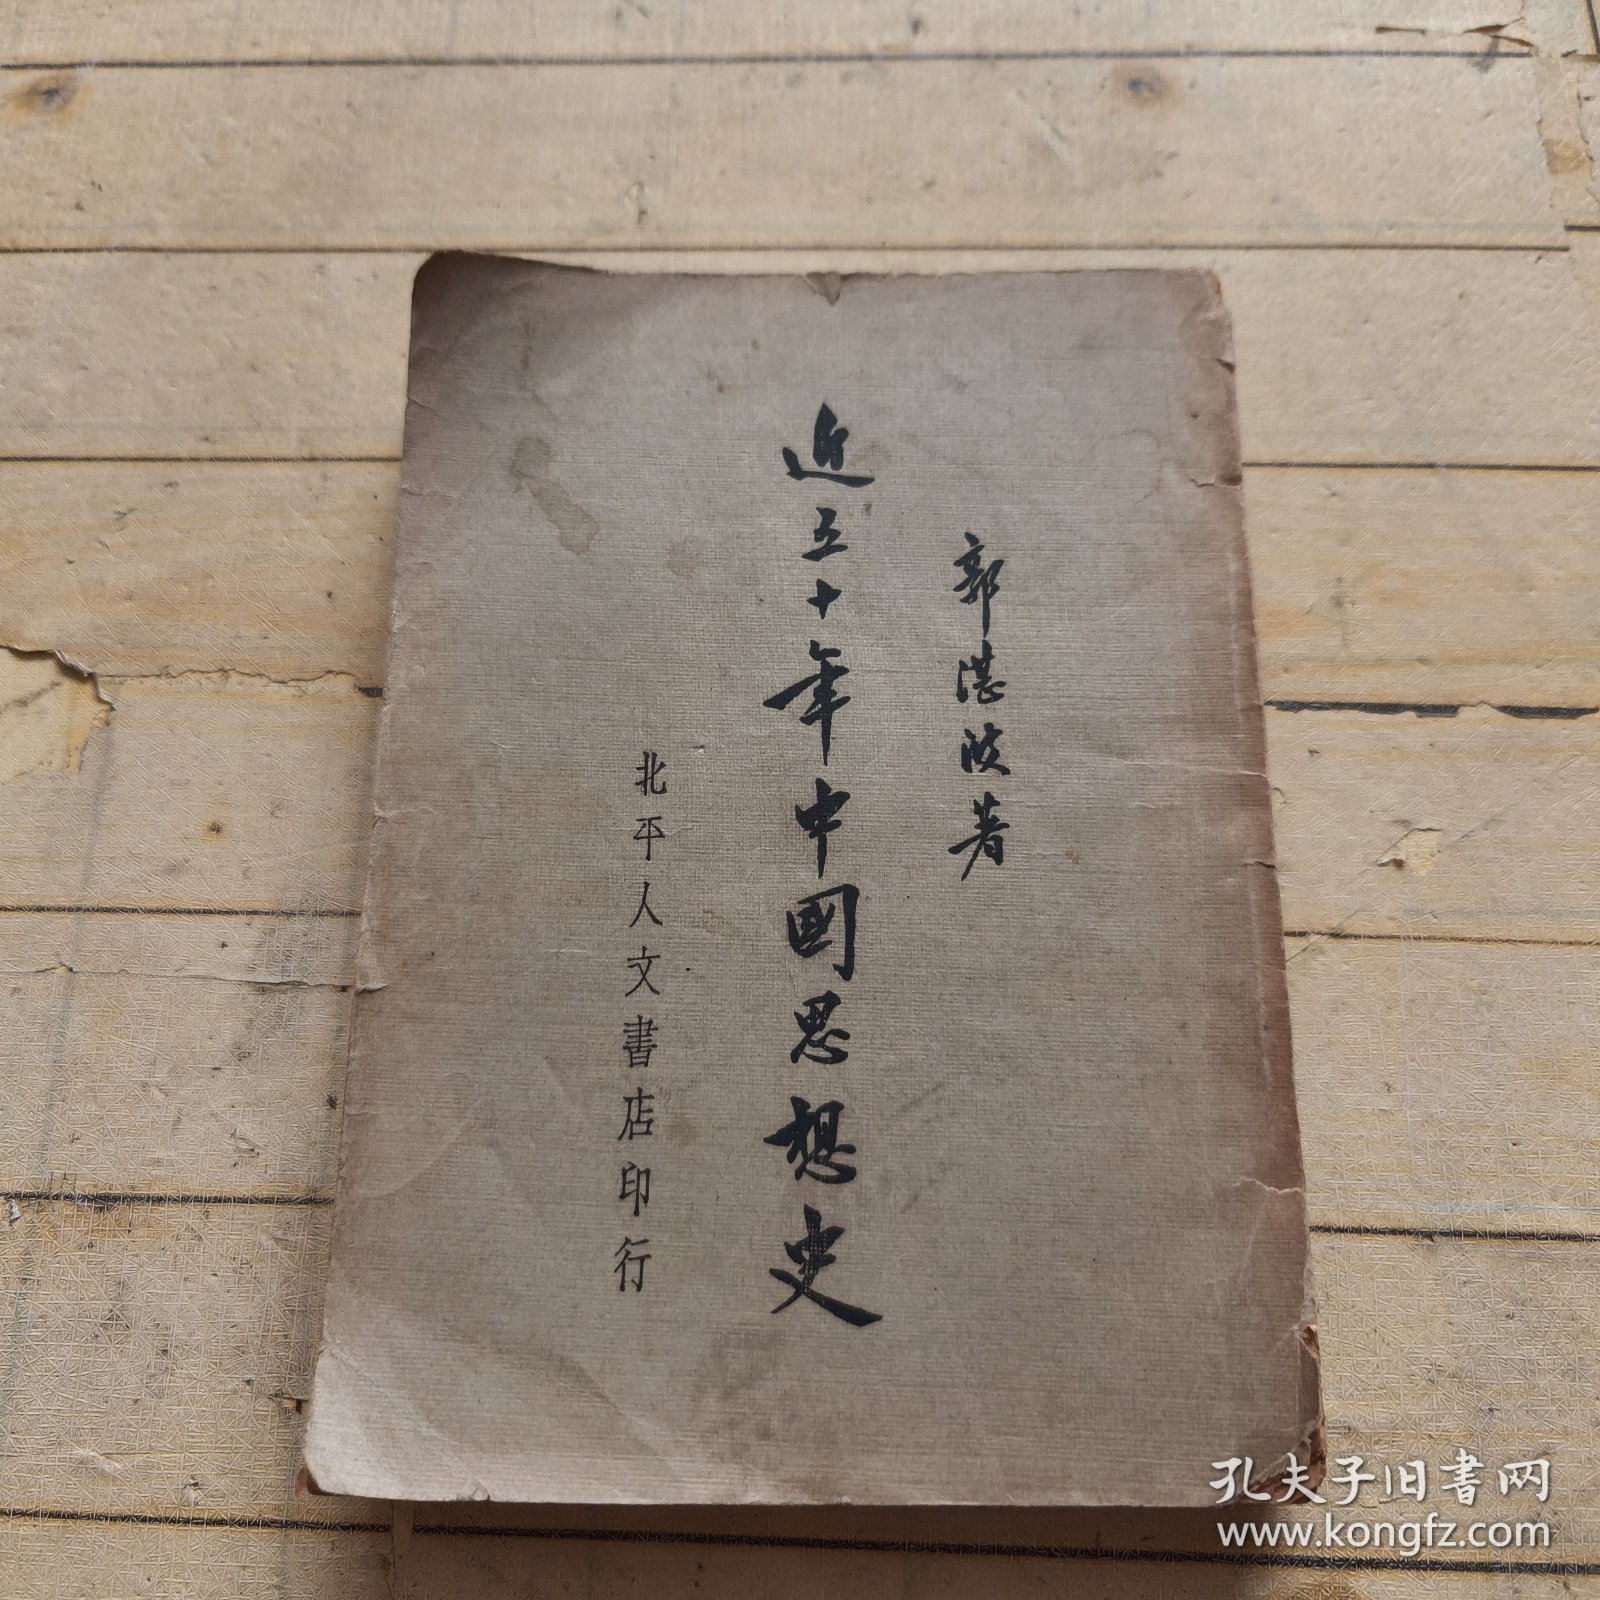 郭湛波著
近五十年中國思想史
北平人文書店印行
孔夫子旧书网
www.kongfz.com